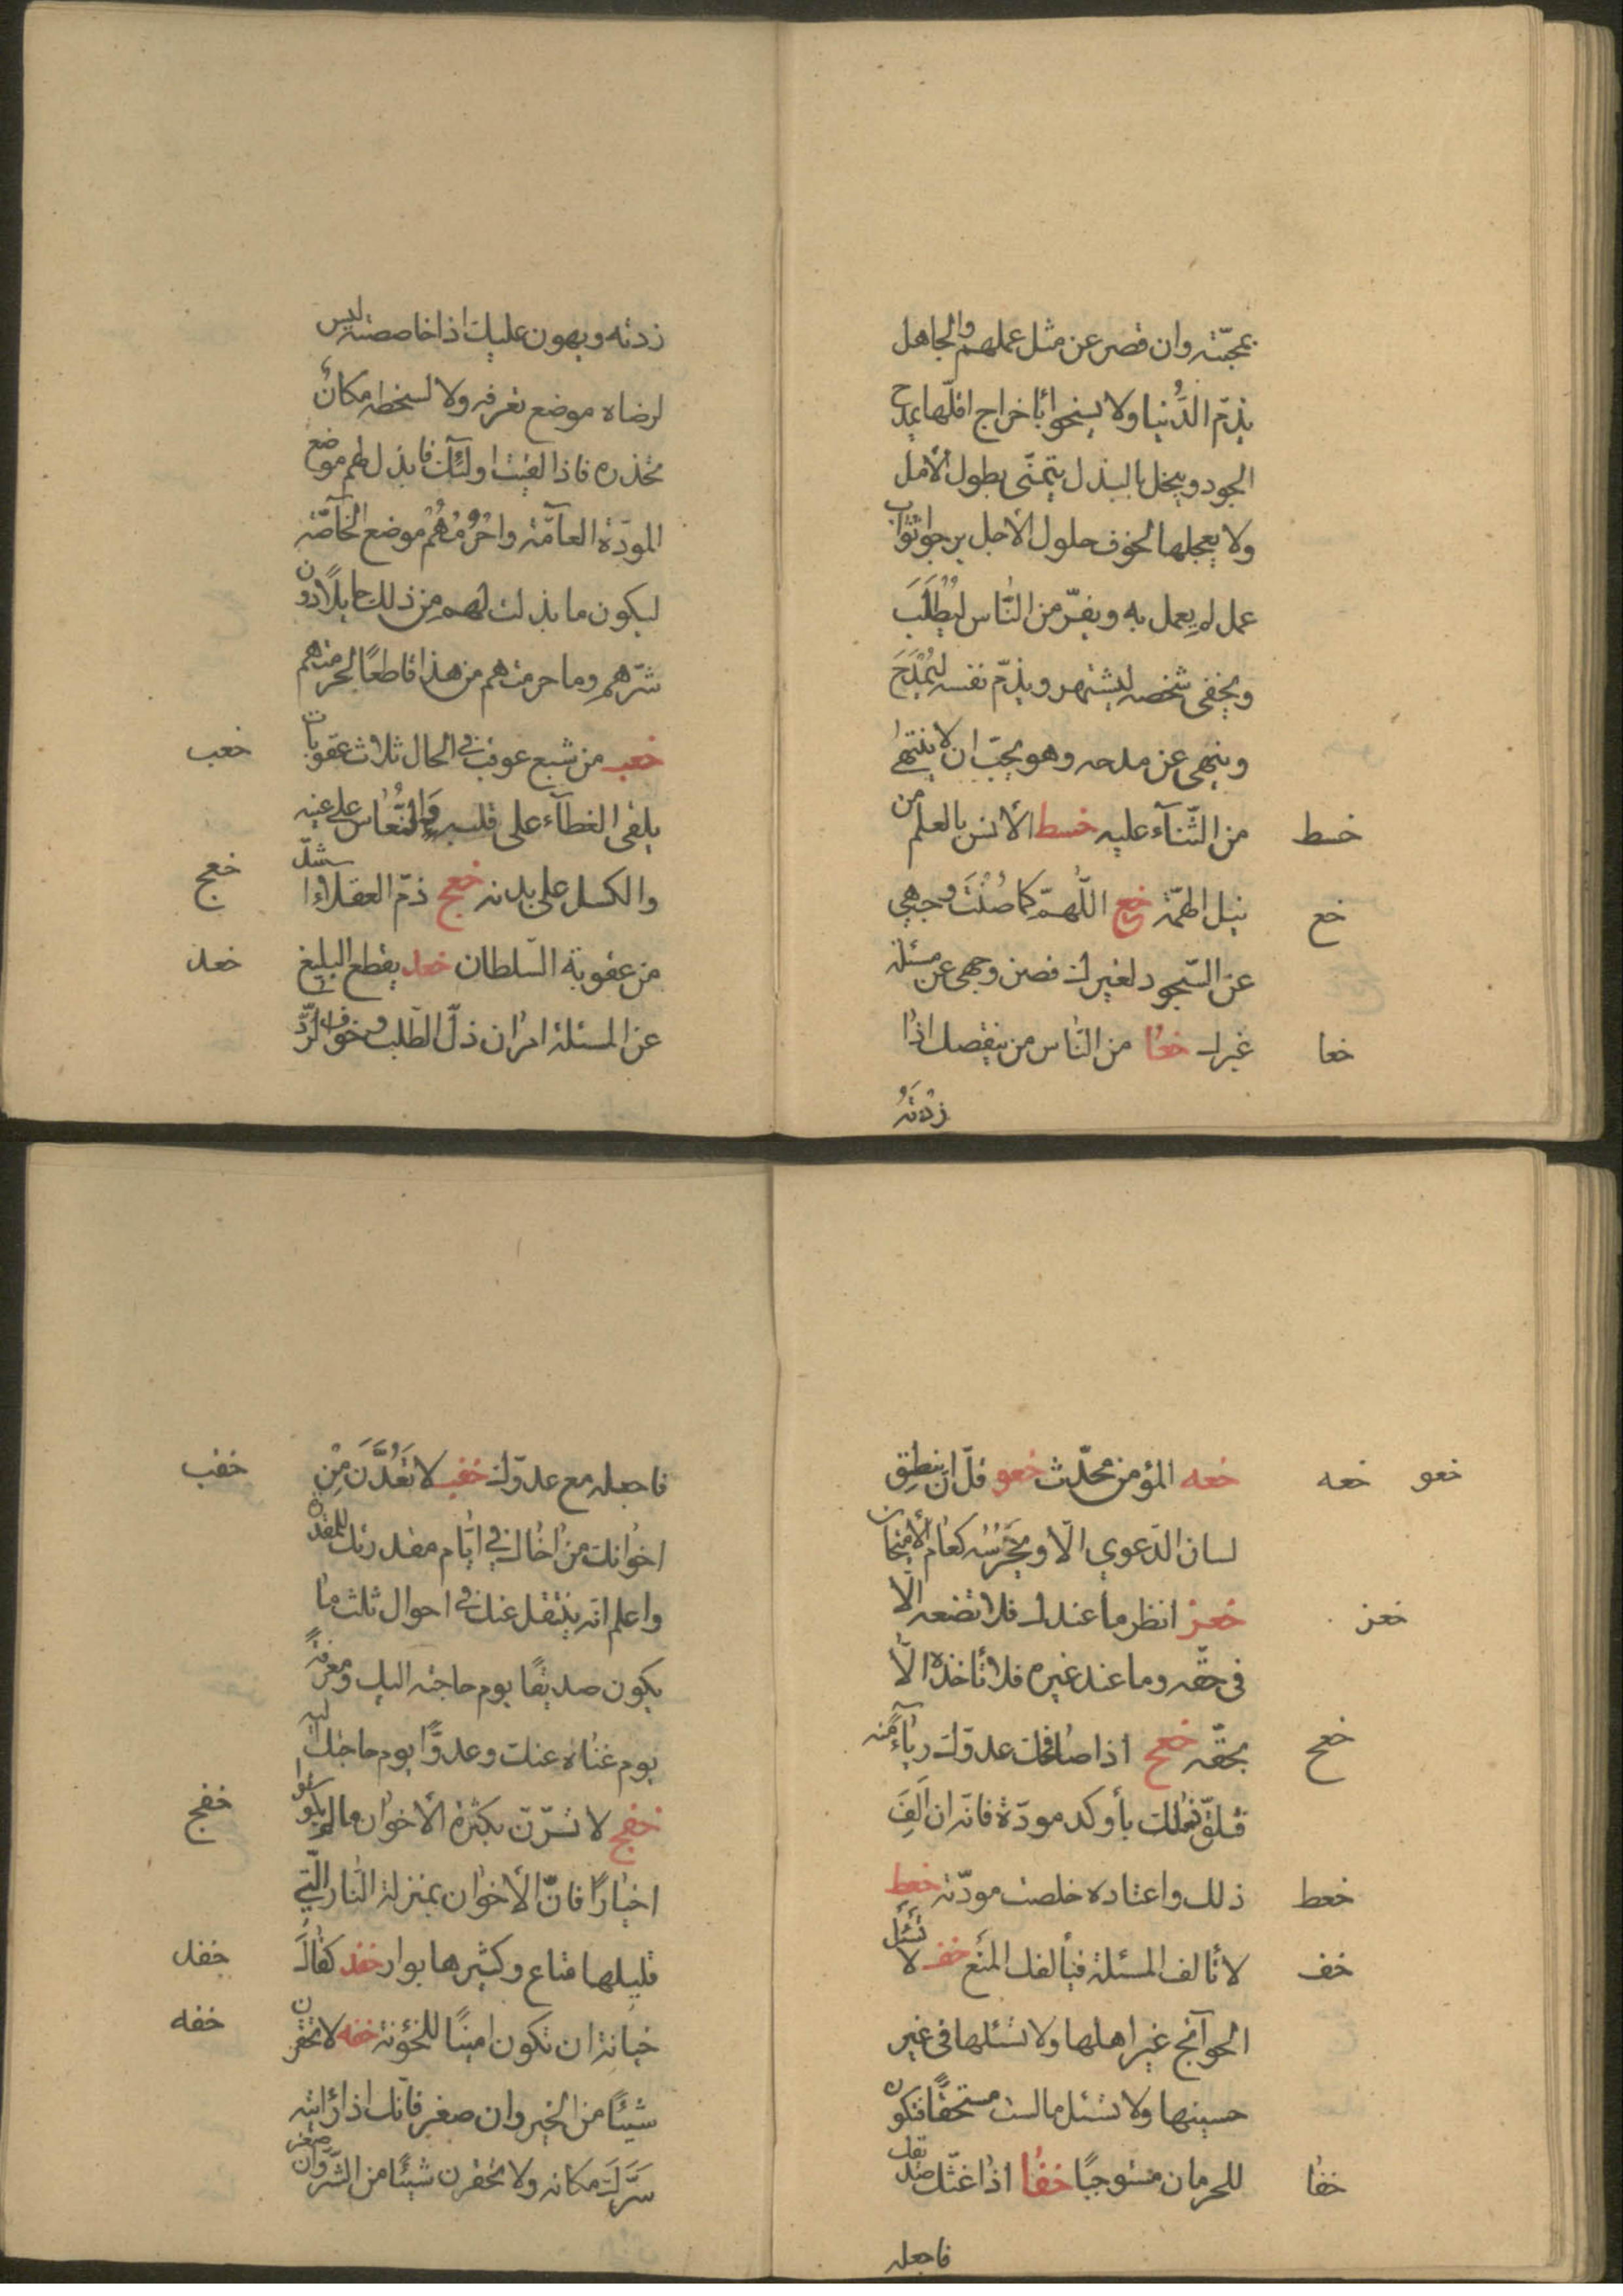 بمحبّته وان قصر عن مثل عملهم والجاهل
يذمّ الدُّنيا ولا يسخوا باخراج اقلّها يمدح
الجود ويبخل بالبذل يتمنّى بطول الأمل
ولا يعجلها لخوف حلول الأجل يرجوا ثواب
عمل لم يعمل به ويفرّ من النّاس ليُطْلَبَ
ويخفى شخصه ليشتهر ويذمّ نفسه ليُمْدَحَ
وينهى عن مدحه وهو يحبّ ان لا ينتهى
من الثّنآء عليه خسط الأنس بالعلم من
خسط
نبل الهمّة خع اللّهمّ كما صُنْتَ وجهي
خع
عن السّجود لغيرك فصن وجهي عن مسئلة
غيرك خعا من النّاس من ينقصك اذا
خعا
زِدْتَهُ
زدته ويهون عليك اذا خاصصته ليس
لرضاه موضع تعرفه ولا لسخطه مكانٌ
تحذره فاذا لقيت اولئك فابذل لهم موضع
المودّة العآمّة واحْرُمْهُمْ موضع الخآصّة
ليكون ما بذلت لهم من ذلك حايلاً دون
شرّهم وما حرمتهم من هذا قاطعًا لحرمتهم
خعب من شبع عوقب في الحال ثلاث عقوبات
خعب
يلقى الغطآء على قلبه والنُّعاس على عينه
والكسل على بدنه خعج ذمّ العقلاء اشدّ
خعج
من عقوبة السّلطان خعد يقطع البليغ
خعد
عن المسئلة امران ذلّ الطّلب وخوف الرّدّ
خعه المؤمن محدّث خعو قلّ ان ينطق
خعه خعو
لسان الدّعوي الّا ويخرسُه كعام الأمتحان
خعز انظر ما عندك فلا تضعه الّا
خعز
في حقّه وما عند غيره فلا تأخذه الّا
بحقّه خعح اذا صافاك عدوّك رياءً منه
خعح
فتلقّ ذلك بأوكد مودّة فانّه ان اَلِفَ
ذلك واعتاده خلصت مودّته خعط
خعط
لا تألف المسئلة فيألفك المنع خف لا تَسْئَل
خف
الحوآئج غير اهلها ولا تسئلها في غير
حينها ولا تسئل ما لست مستحقًّا فتكون
للحرمان مستوجبًا خفا اذا غشّك صديقك
خفا
فاجعله
فاجعله مع عدوّك خفب لا تَعُدَّنَّ مِنْ
خفب
اخوانك من اخاك في ايّام مقدرتك للمقدرة
واعلم انّه ينتقل عنك في احوال ثلث ما
يكون صديقًا يوم حاجته اليك ومعرفةً
يوم غناه عنك وعدوًّا يوم حاجتك اليه
خفج لا تسرّنّ بكثرة الأخوان ما لم يكونوا
خفج
اخيارًا فانّ الأخوان بمنزلة النّار الّتي
قليلها متاع وكثيرها بوار خفد كفاك
خفد
خيانة ان تكون امينًا للخونة خفه لا تحقرن
خفه
شيئًا من الخير وان صغر فانّك اذا رايته
سَرَّكَ مكانه ولا تحقرن شيئًا من الشّرّ وان صغر